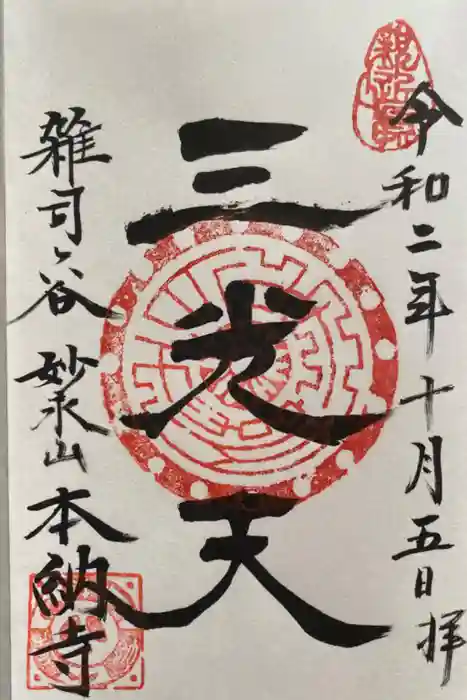 令和二年十月五日拝
三光天
雑司ヶ谷 妙永山 本納寺